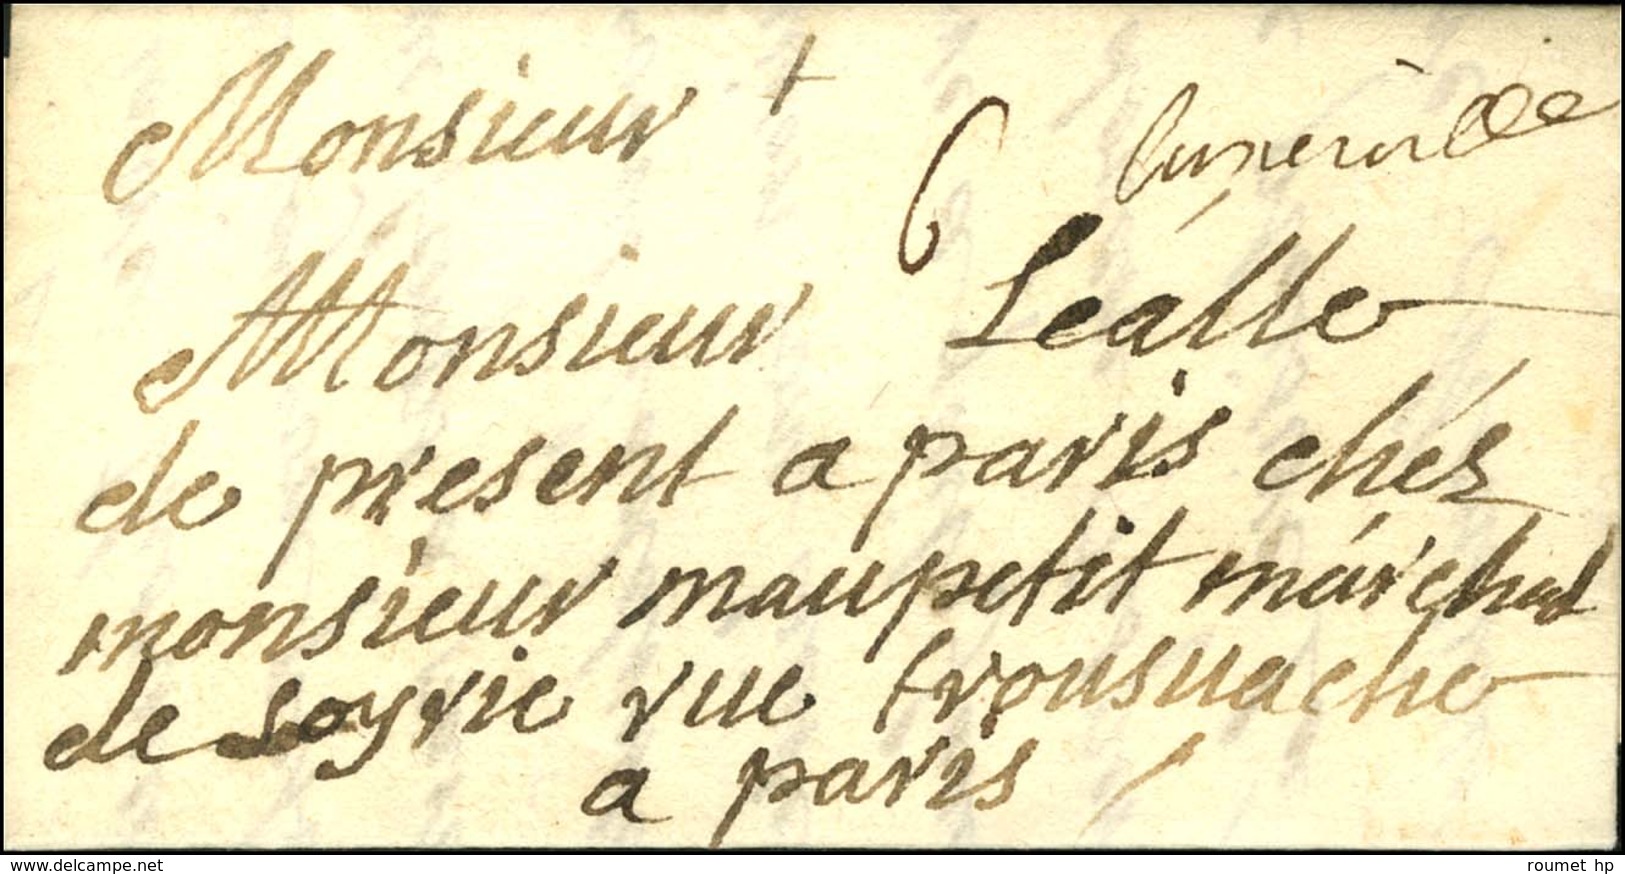 Monsieur
6 Luneville
Monsieur Léalle
de present a paris chés
monsieur maupetit márchad
de soyrie rue trousuache
a paris
delcampe.net
roumet_hp